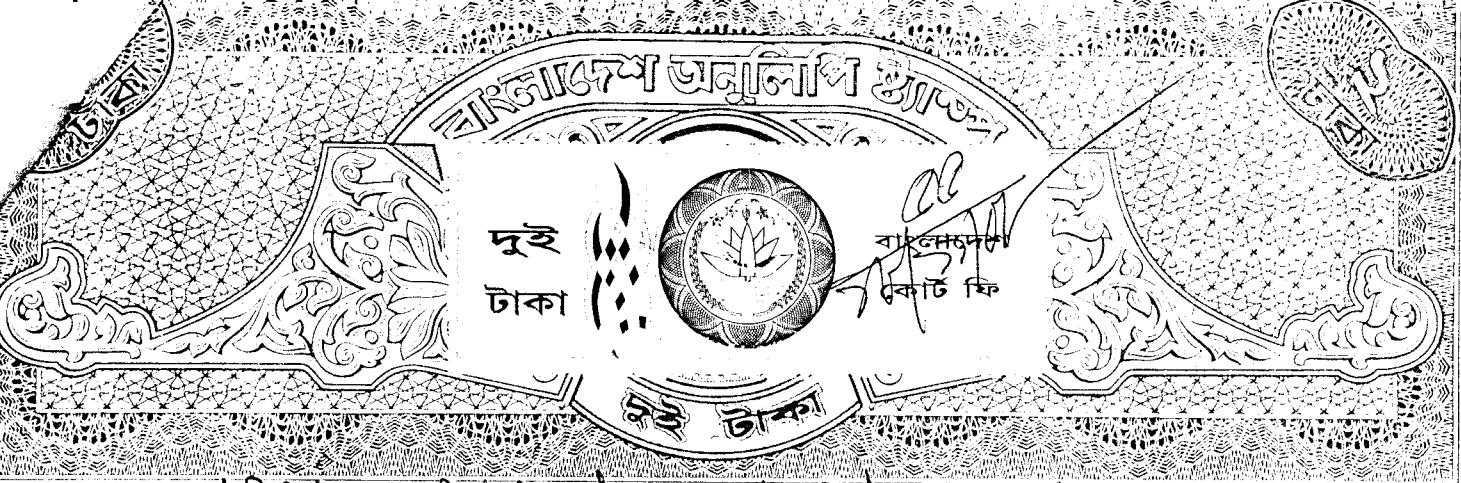 বাংলাদেশ অনুলিপি ষ্ট্যাম্প
২ টাকা
টাকা
দুই
টাকা
বাংলাদেশ
কোর্ট ফি
দুই টাকা